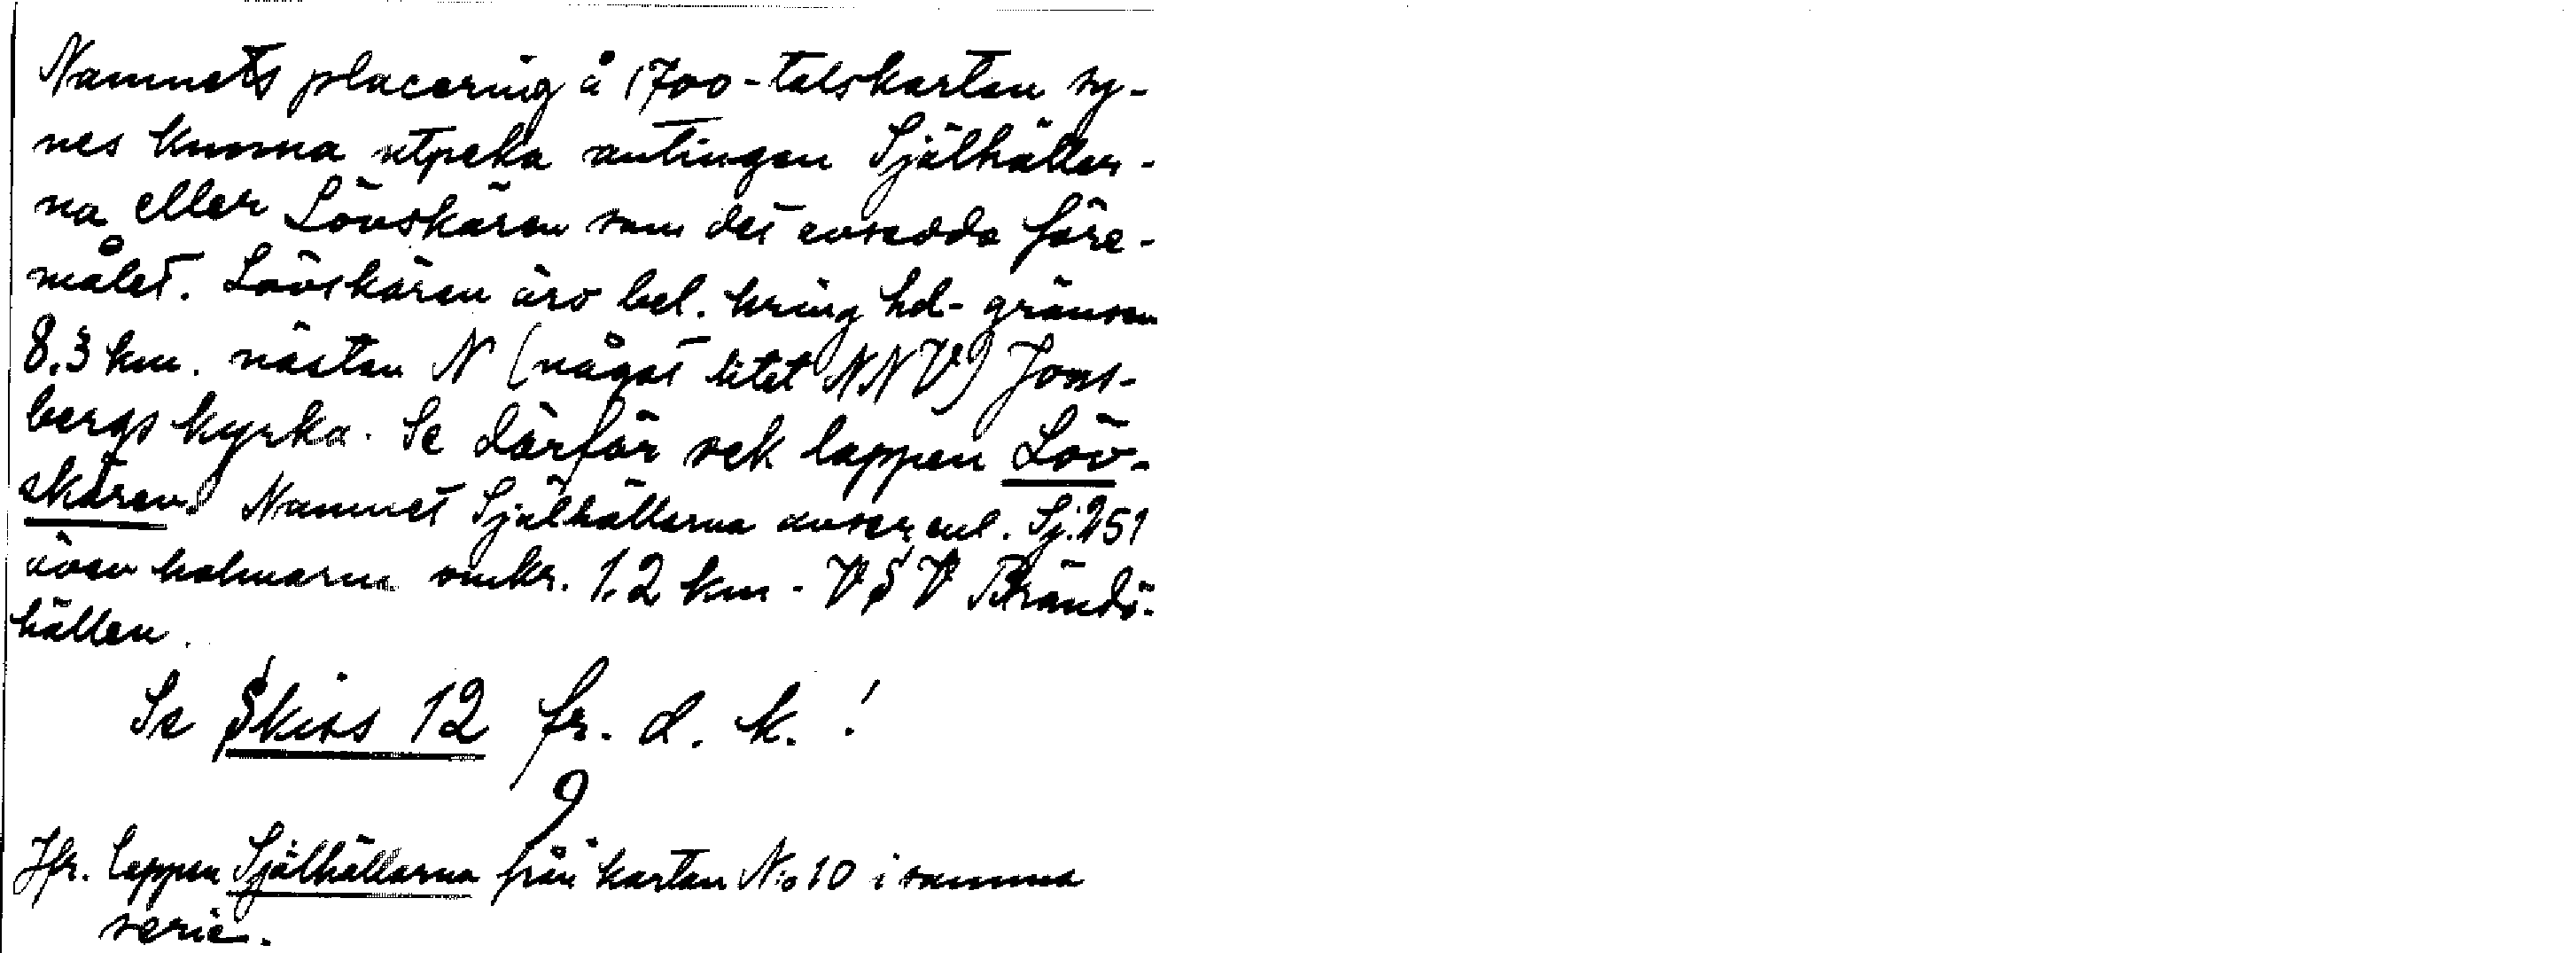 Namnets placering å 1700-talskartan sy-
nes kunna utpeka antingen Själhäller-
na eller Lövskären som det avsedda före-
målet. Lövskären äro bel. kring hd-gränsen
8.3 km. nästan N (något litet NNV) Jons-
bergs kyrka. Se därför sek lappen Löv-
skären. Namnet Själhällarna avser enl. Sj. 251
även holmarna omkr. 1.2 km. VSV Brändö-
hällen.
Se Skiss 12 fr. d. k.!
Jfr. lappen Själhällarna från kartan No 10 i samma
serie.